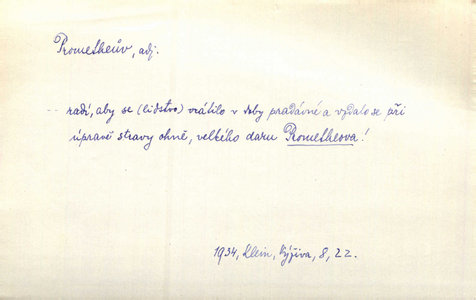 Prometheův, adj.
-- radí, aby se (lidstvo) vrátilo v doby pradávné a vzdalo se při
úpravě stravy ohně, velkého daru Prometheova!
1934, Klein, Výživa, 8, 22.